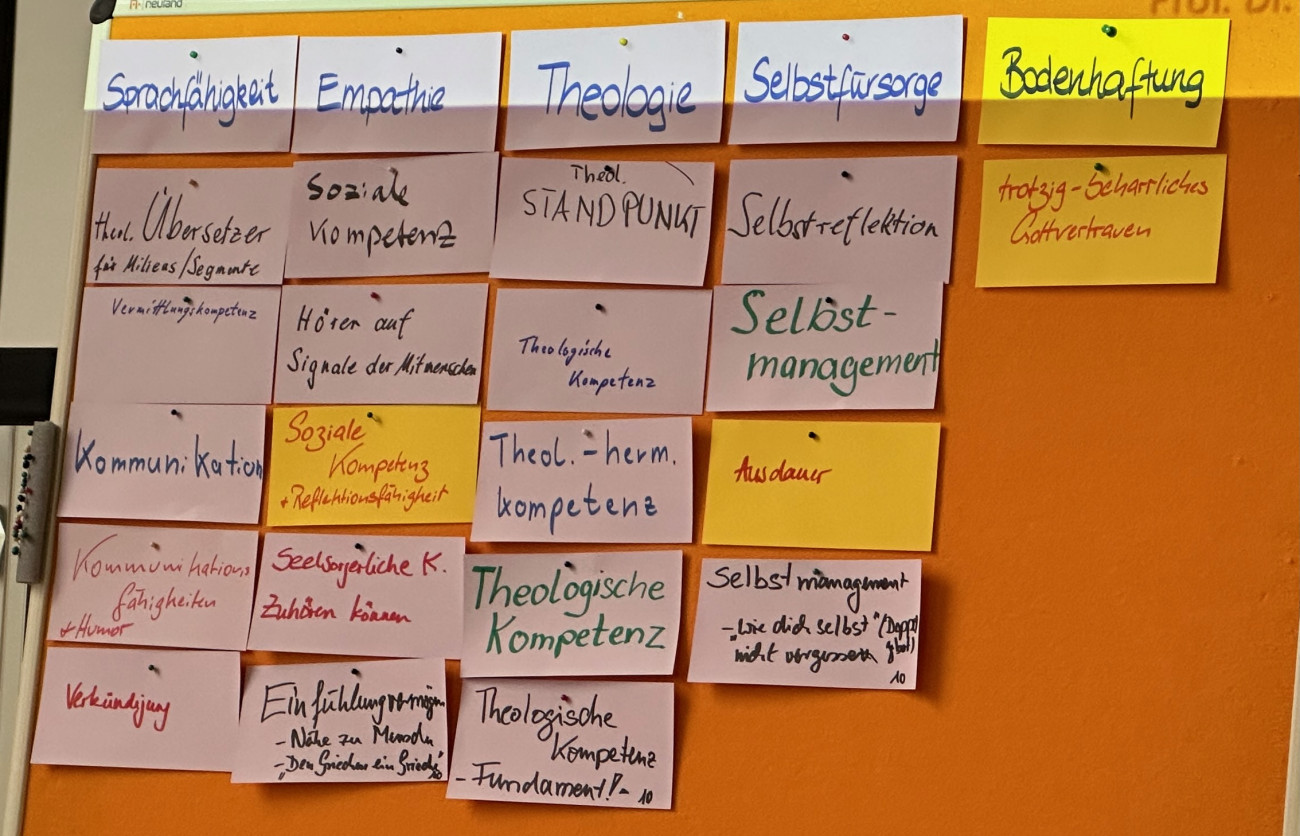 neuland
Prof. Dr.
Sprachfähigkeit
Theol. Übersetzer
für Milieus/Segmente
Vermittlungskompetenz
Kommunikation
Kommunikations
fähigkeiten
+ Humor
Verkündigung
Empathie
Soziale
Kompetenz
Hören auf
Signale der Mitmenschen
Soziale
Kompetenz
+ Reflektionsfähigkeit
Seelsorgerliche K.
Zuhören können
Einfühlungsvermögen
- Nähe zu Menschen
- „Den Griechen ein Grieche"
10
Theologie
Theol.
STANDPUNKT
Theologische
Kompetenz
Theol.-herm.
kompetenz
Theologische
Kompetenz
Theologische
Kompetenz
- Fundament! - 10
Selbstfürsorge
Selbstreflektion
Selbst-
management
Ausdauer
Selbstmanagement
- „wie dich selbst" (Doppel
nicht vergessen gebot)
10
Bodenhaftung
trotzig-beharrliches
Gottvertrauen